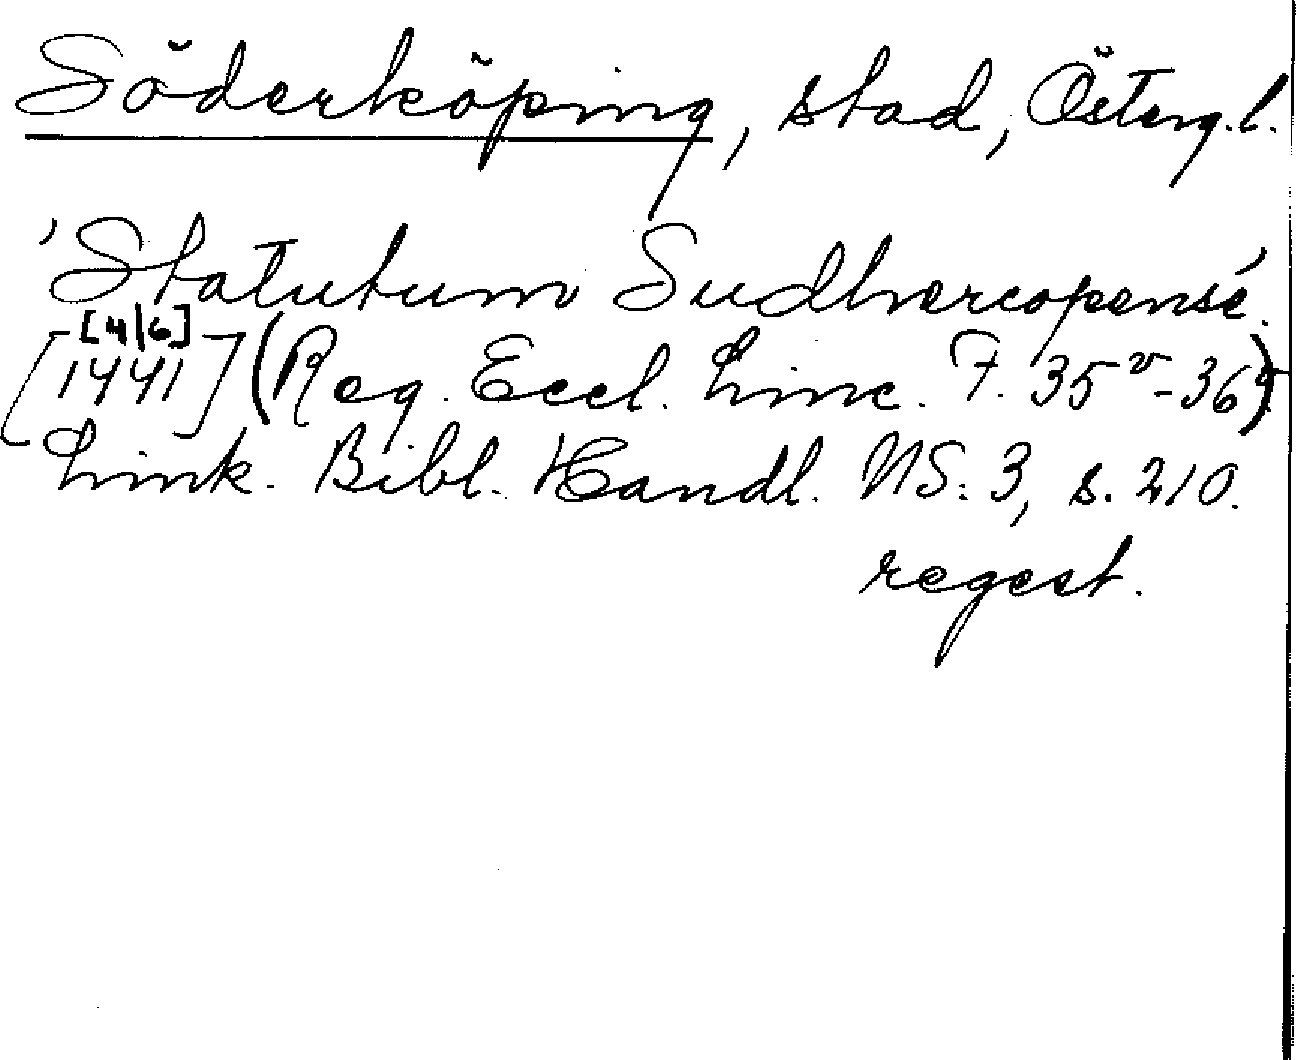 Söderköping, stad, Österg.l.
'Statutum Sudhercopense'.
[4/6]
[1441] (Reg. Eccl. Linc. F. 35v-36r)
Link. Bibl. Handl. NS: 3, s. 210.
regest.